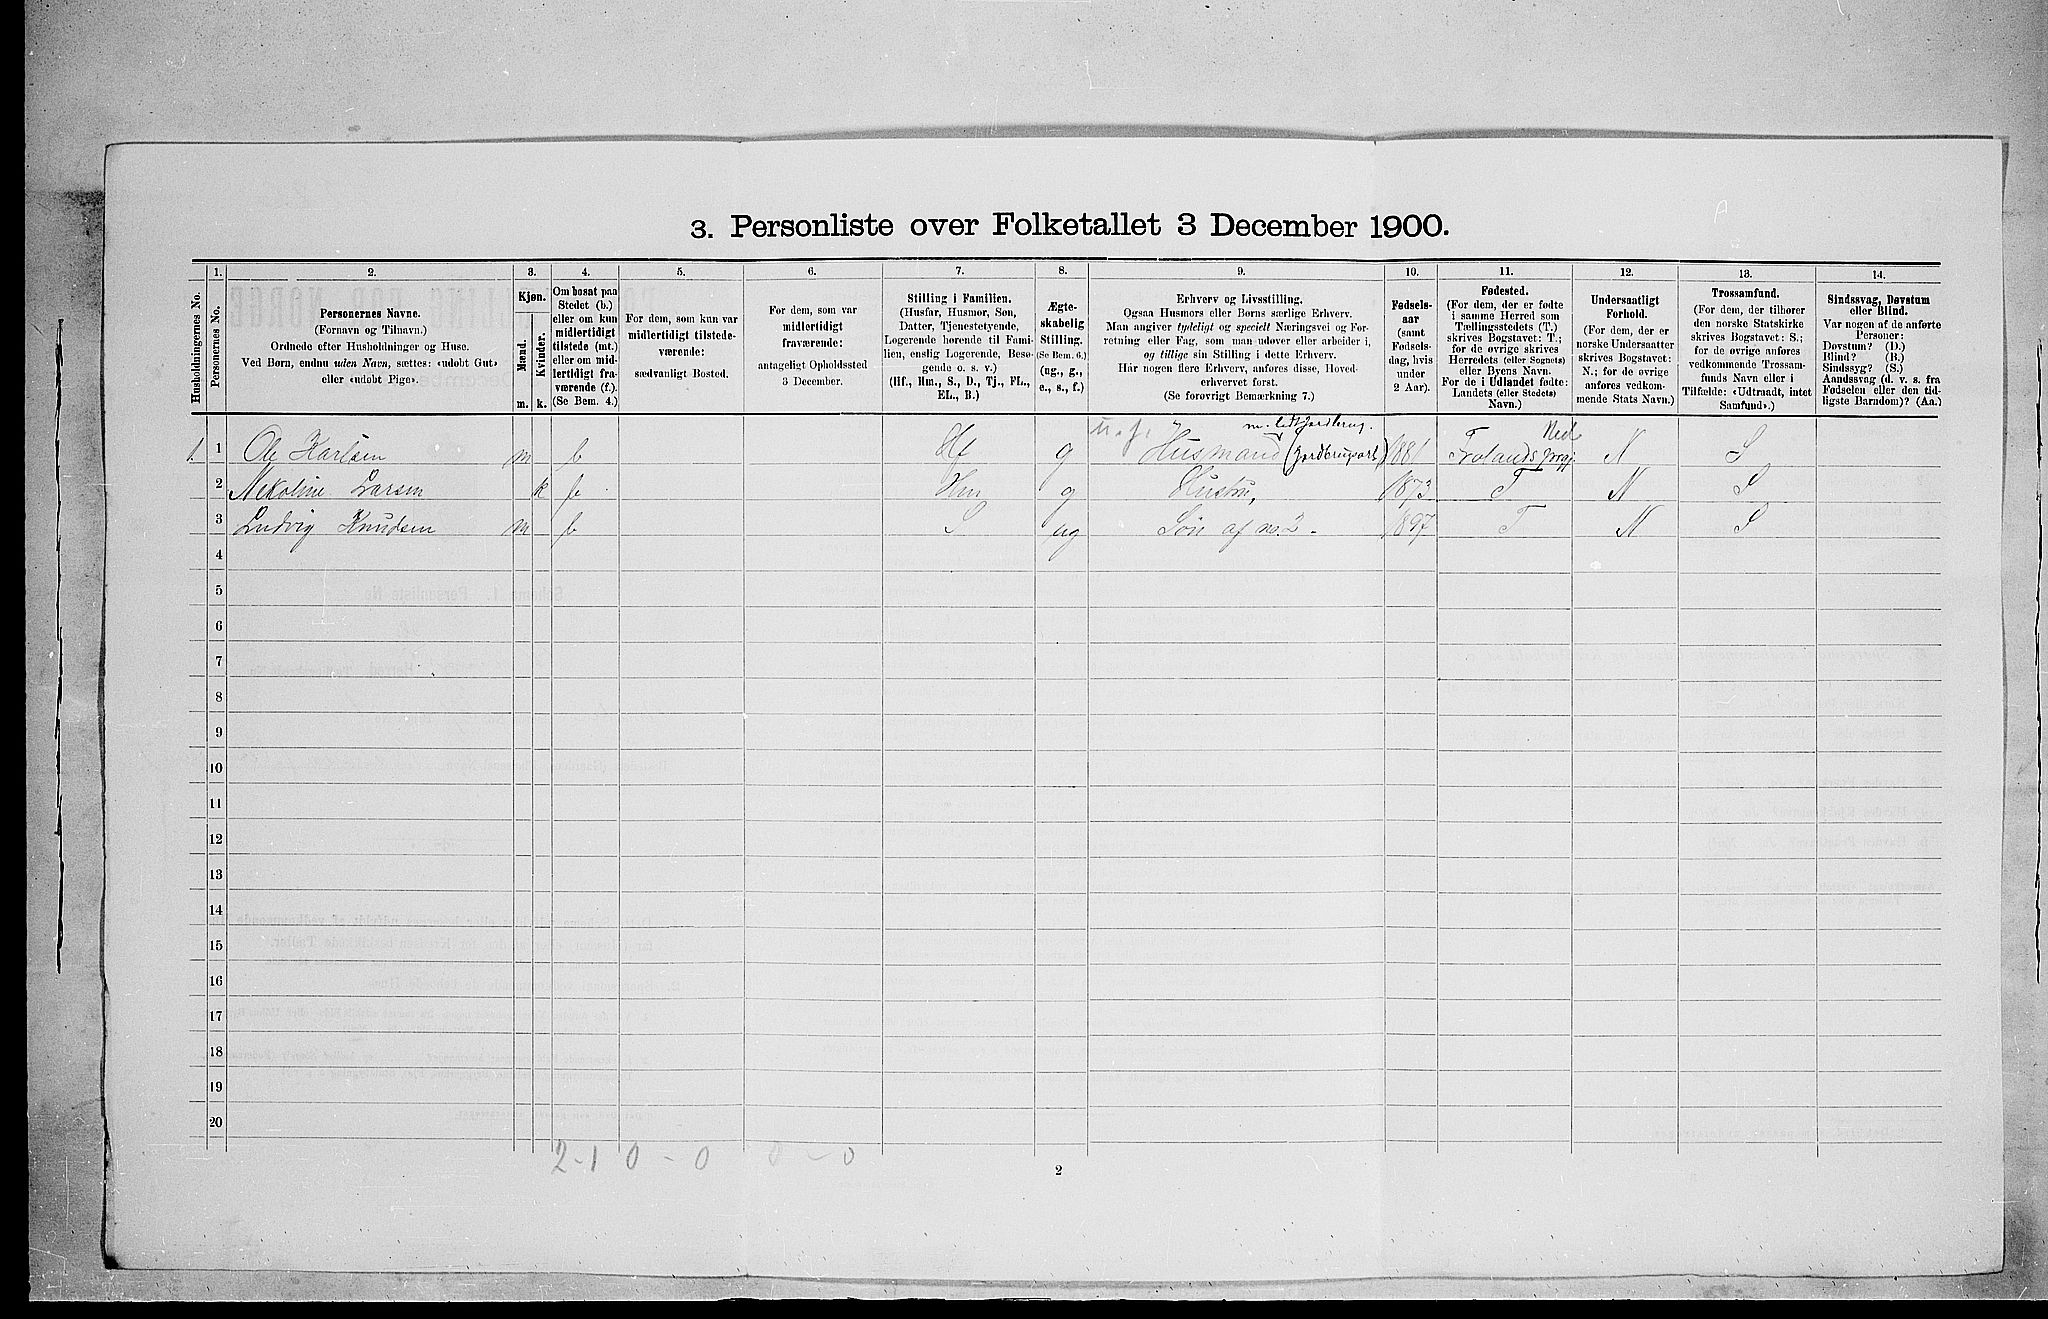 3. Personliste over Folketallet 3 December 1900.
1. 2. 3. 4. 5. 6. 7. 8. 9. 10. 11. 12. 13. 14.
Husholdningernes No.
Personernes No.
Personernes Navne.
(Fornavn og Tilnavn.)
Ordnede efter Husholdninger og Huse.
Ved Børn, endnu uden Navn, sættes: «udøbt Gut»
eller «udøbt Pige».
Kjøn.
Mænd.
Kvinder.
m. k.
Om bosat paa
Stedet (b.)
eller om kun
midlertidigt
tilstede (mt.)
eller om mid-
lertidigt fra-
værende (f.)
(Se Bem. 4.)
For dem, som kun var
midlertidigt tilstede-
værende:
sædvanligt Bosted.
For dem, som var
midlertidigt
fraværende:
antageligt Opholdssted
3 December.
Stilling i Familien.
(Husfar, Husmor, Søn,
Datter, Tjenestetyende,
Logerende hørende til Fami-
lien, enslig Logerende, Besø-
gende o. s. v.)
(Hf., Hm., S., D., Tj., FL.,
EL., B.)
Ægte-
skabelig
Stilling.
(Se Bem. 6.)
(ug., g.,
e., s., f.)
Erhverv og Livsstilling.
Ogsaa Husmors eller Børns særlige Erhverv.
Man angiver tydeligt og specielt Næringsvei og For-
retning eller Fag, som man udøver eller arbeider i,
og tillige sin Stilling i dette Erhverv.
Har nogen flere Erhverv, anføres disse, Hoved-
erhvervet først.
(Se forøvrigt Bemærkning 7.)
Fødsels-
aar
(samt
Fødsels-
dag, hvis
under
2 Aar).
Fødested.
(For dem, der er fødte
i samme Herred som
Tællingsstedets (T.)
skrives Bogstavet: T.;
for de øvrige skrives
Herredets (eller Sognets)
eller Byens Navn.
For de i Udlandet fødte:
Landets (eller Stedets)
Navn.)
Undersaatligt
Forhold.
(For dem, der er
norske Undersaatter
skrives Bogstavet:
N.; for de øvrige
anføres vedkom-
mende Stats Navn.)
Trossamfund.
(For dem, der tilhører
den norske Statskirke
skrives Bogstavet: S.;
for de øvrige anføres
vedkommende Trossam-
funds Navn eller i
Tilfælde: «Udtraadt, intet
Samfund».)
Sindssvag, Døvstum
eller Blind.
Var nogen af de anførte
Personer:
Døvstum? (D.)
Blind? (B.)
Sindssyg? (S.)
Aandssvag (d. v. s. fra
Fødselen eller den tid-
ligste Barndom)? (Aa.)
m. lidt jordbrug. Ned
1. 1 Ole Karlsen m b Hf g Husmand (Jordbrugsarb) 1881 Frolands prgj N S
2 Nikoline Larsen k b Hm g Hustru, 1873 T N S
3 Ludvig Knudsen m b S ug Søn af no. 2. 1897 T N S
4
5
6
7
8
9
10
11
12
13
14
15
16
17
18
19
20
2-1 0-0 0-0
2